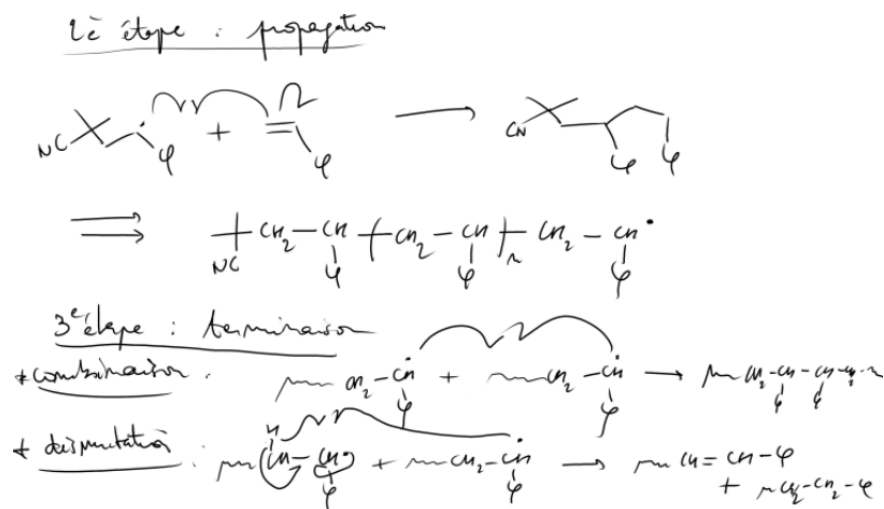 2è étape : propagation
NC φ + φ → CN φ φ
⇒ NC CH2 - CH φ ( CH2 - CH φ )n CH2 - CH• φ
3e étape : terminaison
* combinaison : CH2 - CH• φ + CH2 - CH• φ → CH2 - CH - CH - CH2 φ φ
* dismutation : H CH - CH• φ + CH2 - CH• φ → CH = CH - φ
+ CH2 - CH2 - φ